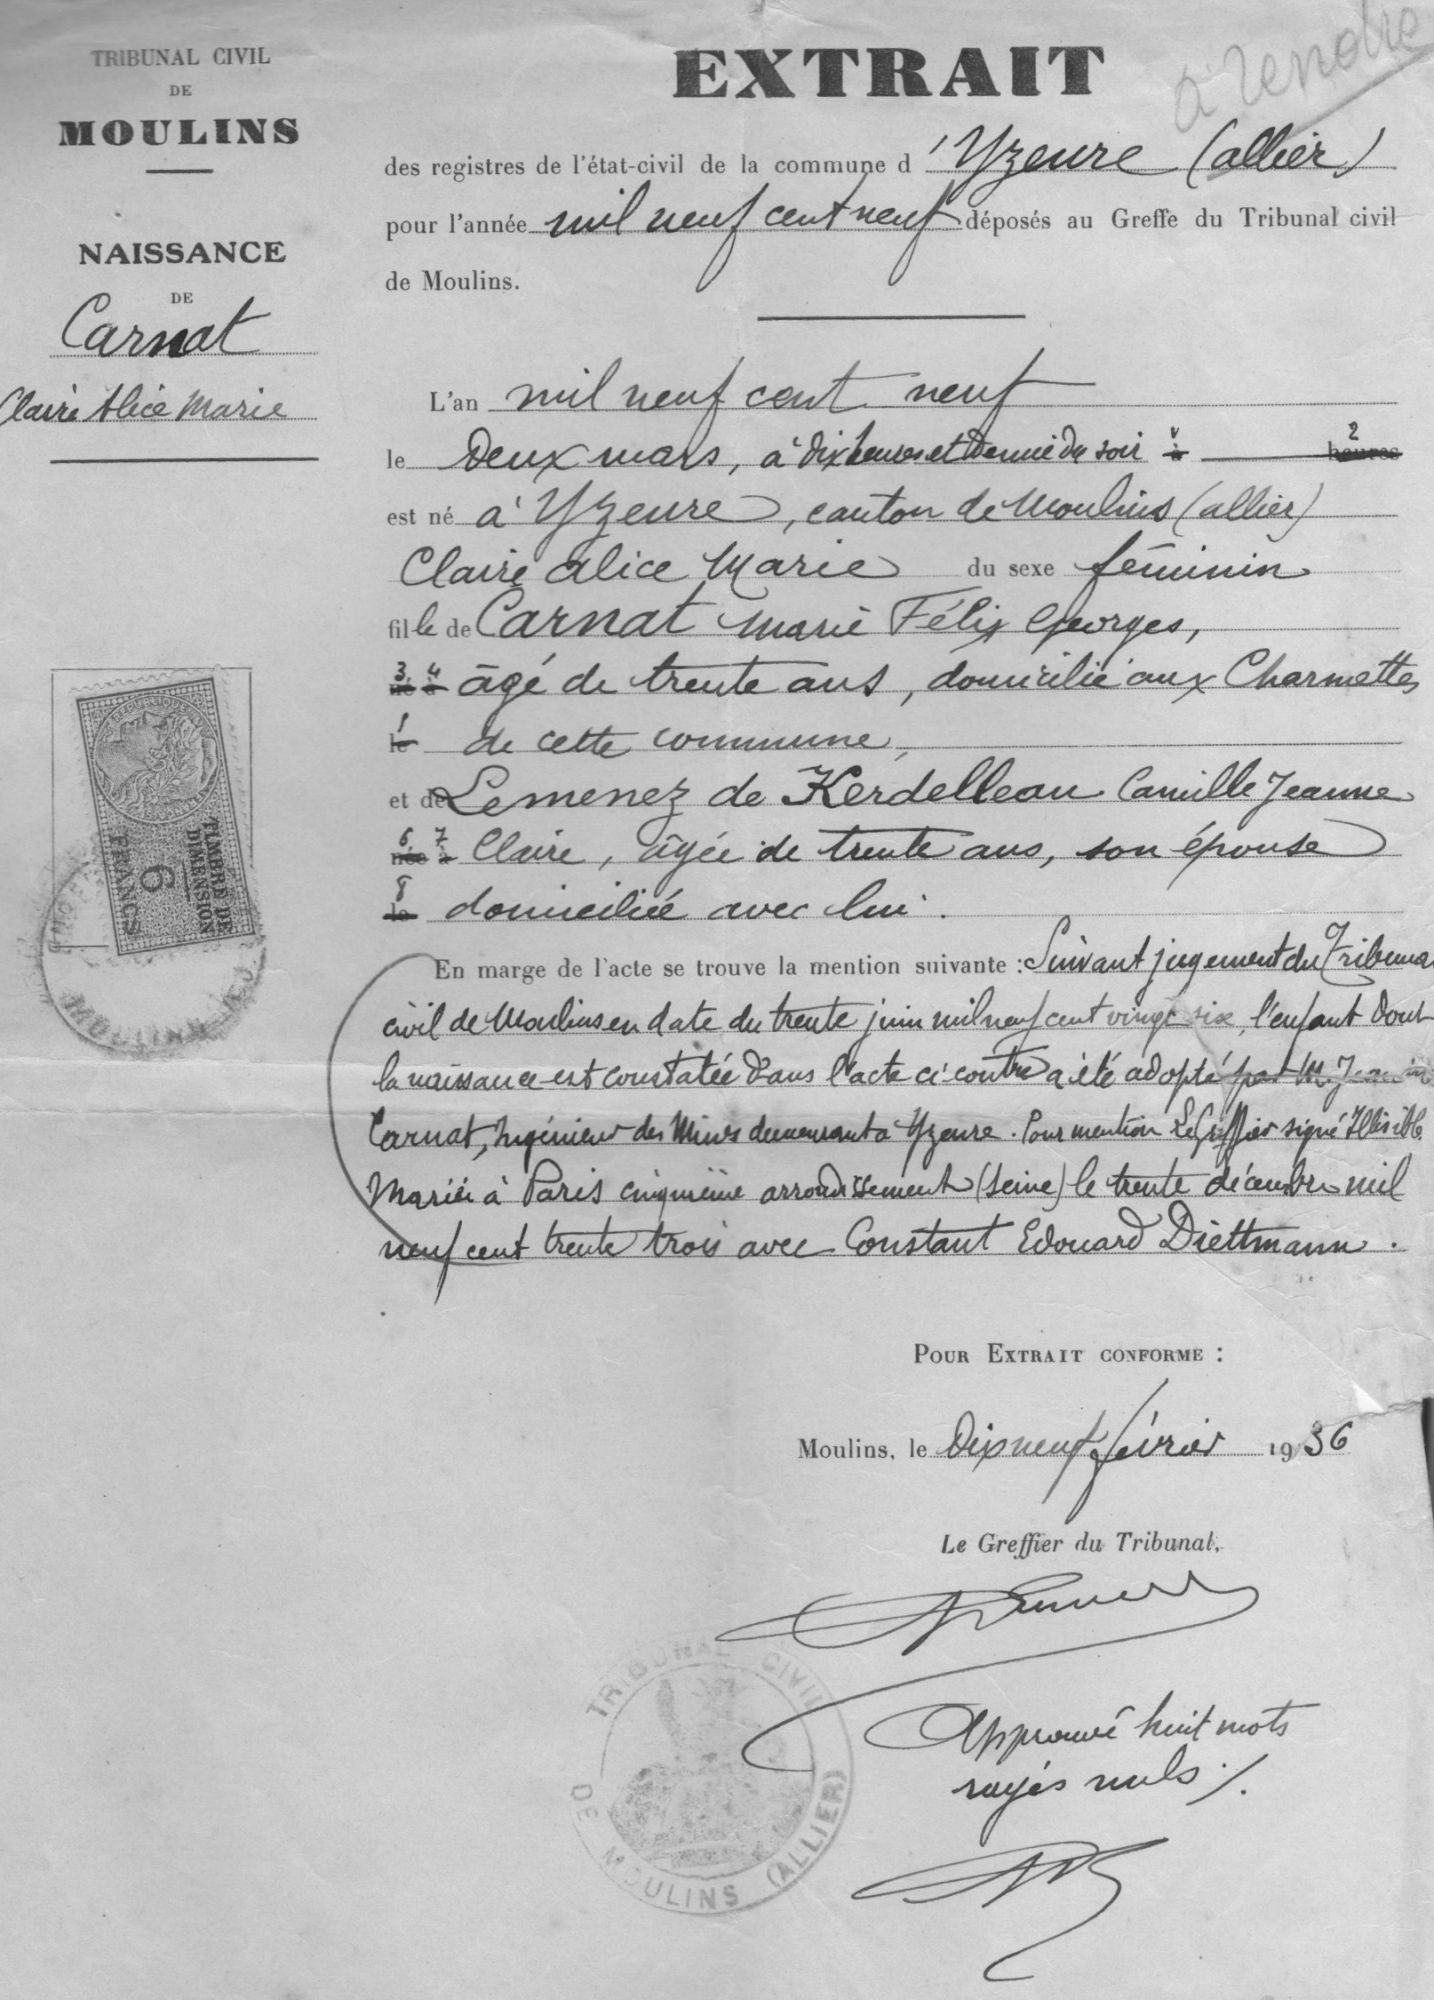 TRIBUNAL CIVIL
DE
MOULINS
NAISSANCE
DE
Carnat
Claire Alice Marie
à rendre
EXTRAIT
des registres de l'état-civil de la commune d'Yzeure (allier)
pour l'année mil neuf cent neuf déposés au Greffe du Tribunal civil
de Moulins.
L'an mil neuf cent neuf
le Deux mars, à dix heures et demie du soir à heures 2
est né à Yzeure, canton de Moulins (allier)
Claire alice Marie du sexe féminin
fille de Carnat Marie Félix Georges,
3 4 né à âgé de trente ans, domicilié aux Charmettes
le de cette commune,
et de Lemenez de Kerdelleau Camille Jeanne
6 7 née à Claire, âgée de trente ans, son épouse
8 le domiciliée avec lui.
En marge de l'acte se trouve la mention suivante : Suivant jugement du Tribunal
civil de Moulins en date du trente juin mil neuf cent vingt six, l'enfant dont
la naissance est constatée dans l'acte ci contre a été adopté par M.
Carnat, Ingénieur des Mines demeurant à Yzeure. Pour mention Le Greffier signé Illisible
Mariée à Paris cinquième arrondissement (Seine) le trente décembre mil
neuf cent trente trois avec Constant Edouard Diettmann.
TIMBRE DE
DIMENSION
6
FRANCS
POUR EXTRAIT CONFORME :
Moulins, le Dix neuf février 1936
Le Greffier du Tribunal,
Approuvé huit mots
rayés nuls ./.
TRIBUNAL CIVIL
DE MOULINS (ALLIER)